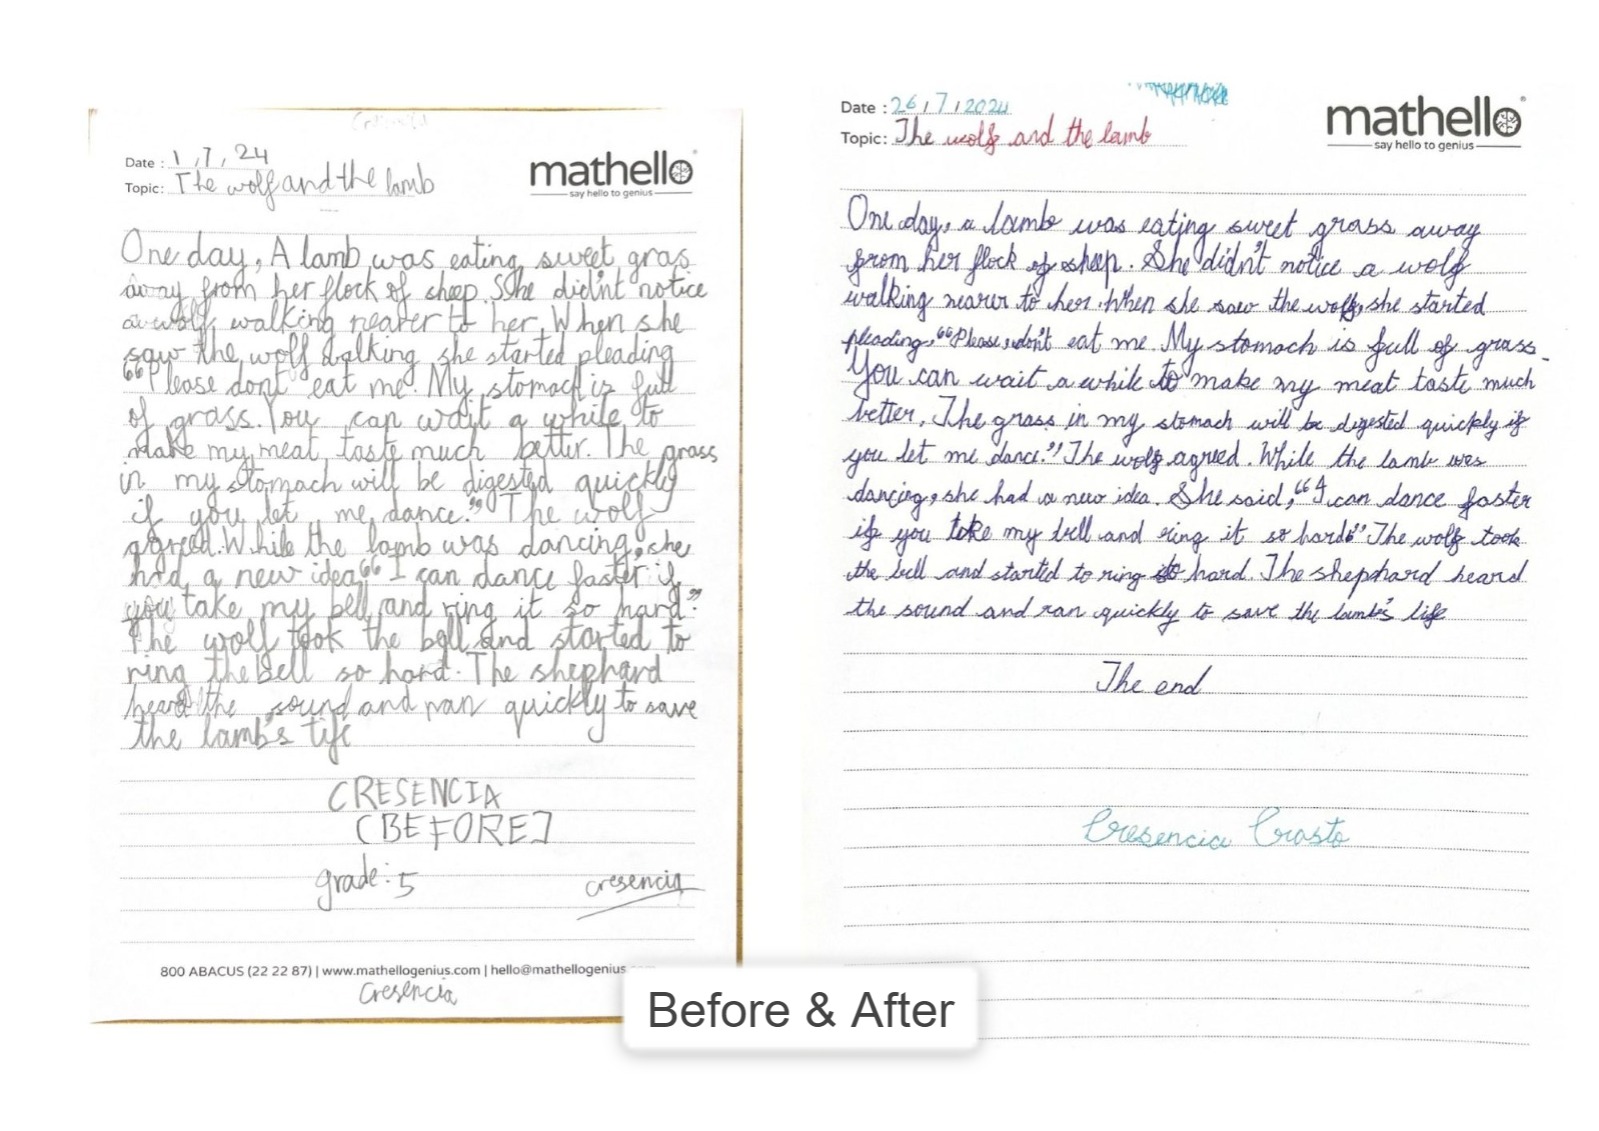 Date : 1 , 7 , 24
Topic: The wolf and the lamb
mathello
say hello to genius
One day, A lamb was eating sweet gras
away from her flock of sheep. She didn't notice
a wolf walking nearer to her. When she
saw the wolf walking, she started pleading
“Please dont eat me. My stomach is full
of grass. You can wait a while to
make my meat taste much better. The grass
in my stomach will be digested quickly
if you let me dance.” The wolf
agreed. While the lamb was dancing, she
had a new idea “I can dance faster if
you take my bell and ring it so hard.”
The wolf took the bell and started to
ring the bell so hard. The shephard
heard the sound and ran quickly to save
the lamb's life
CRESENCIA
[BEFORE]
grade: 5
cresencia
800 ABACUS (22 22 87) | www.mathellogenius.com | hello@mathellogenius
Cresencia
Date : 26 , 7 , 2024
Topic: The wolf and the lamb
mathello
say hello to genius
One day, a lamb was eating sweet grass away
from her flock of sheep. She didn't notice a wolf
walking nearer to her. When she saw the wolf, she started
pleading, “Please, don't eat me. My stomach is full of grass.
You can wait a while to make my meat taste much
better. The grass in my stomach will be digested quickly if
you let me dance.” The wolf agreed. While the lamb was
dancing, she had a new idea. She said, “I can dance faster
if you take my bell and ring it so hard.” The wolf took
the bell and started to ring so hard. The shephard heard
the sound and ran quickly to save the lamb's life
The end
Cresencia Crasto
Before & After